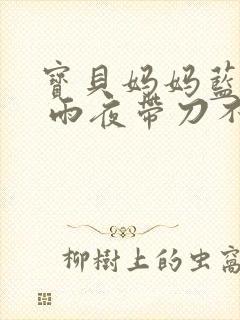 寶貝妈妈藍
雨夜帶刀不
柳樹上的虫窩